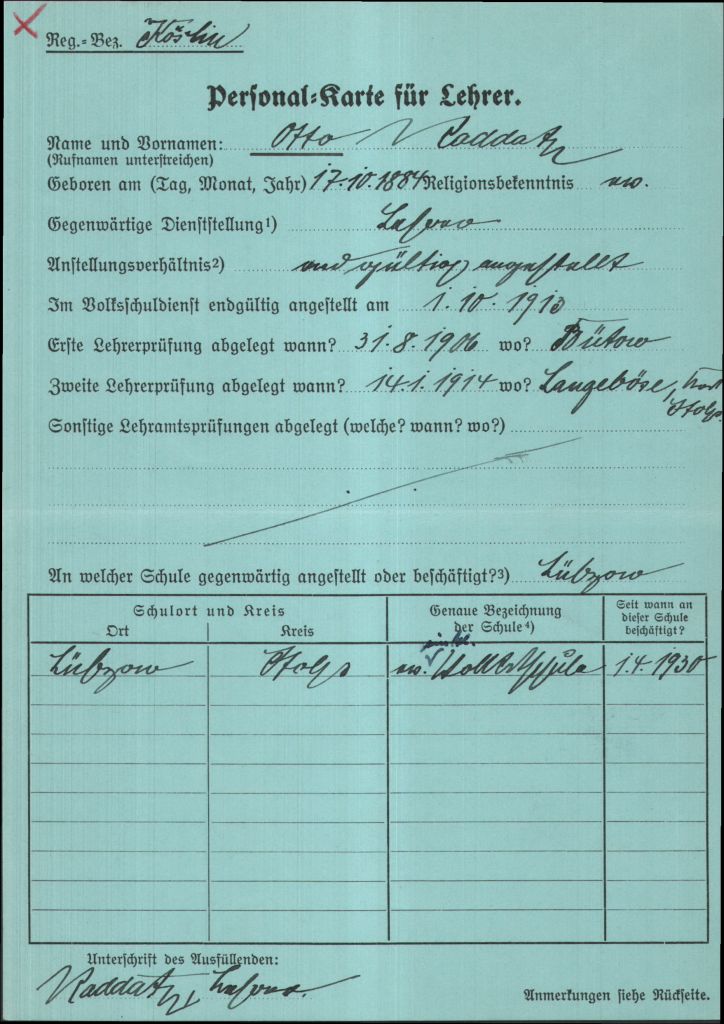 Reg.=Bez. Köslin
Personal=Karte für Lehrer.
Name und Vornamen: Otto Raddatz
(Rufnamen unterstreichen)
Geboren am (Tag, Monat, Jahr) 17.10.1884 Religionsbekenntnis ev.
Gegenwärtige Dienststellung1) Lehrer
Anstellungsverhältnis2) endgültig angestellt
Im Volksschuldienst endgültig angestellt am 1.10.1913
Erste Lehrerprüfung abgelegt wann? 31.8.1906 wo? Bütow
Zweite Lehrerprüfung abgelegt wann? 14.1.1914 wo? Langeböse,
Stolp
Sonstige Lehramtsprüfungen abgelegt (welche? wann? wo?)
An welcher Schule gegenwärtig angestellt oder beschäftigt?3) Lübzow
Schulort und Kreis Genaue Bezeichnung der Schule4) Seit wann an dieser Schule beschäftigt?
Ort Kreis
einkl.
Lübzow Stolp ev. Volksschule 1.4.1930
Unterschrift des Ausfüllenden:
Raddatz, Lehrer.
Anmerkungen siehe Rückseite.